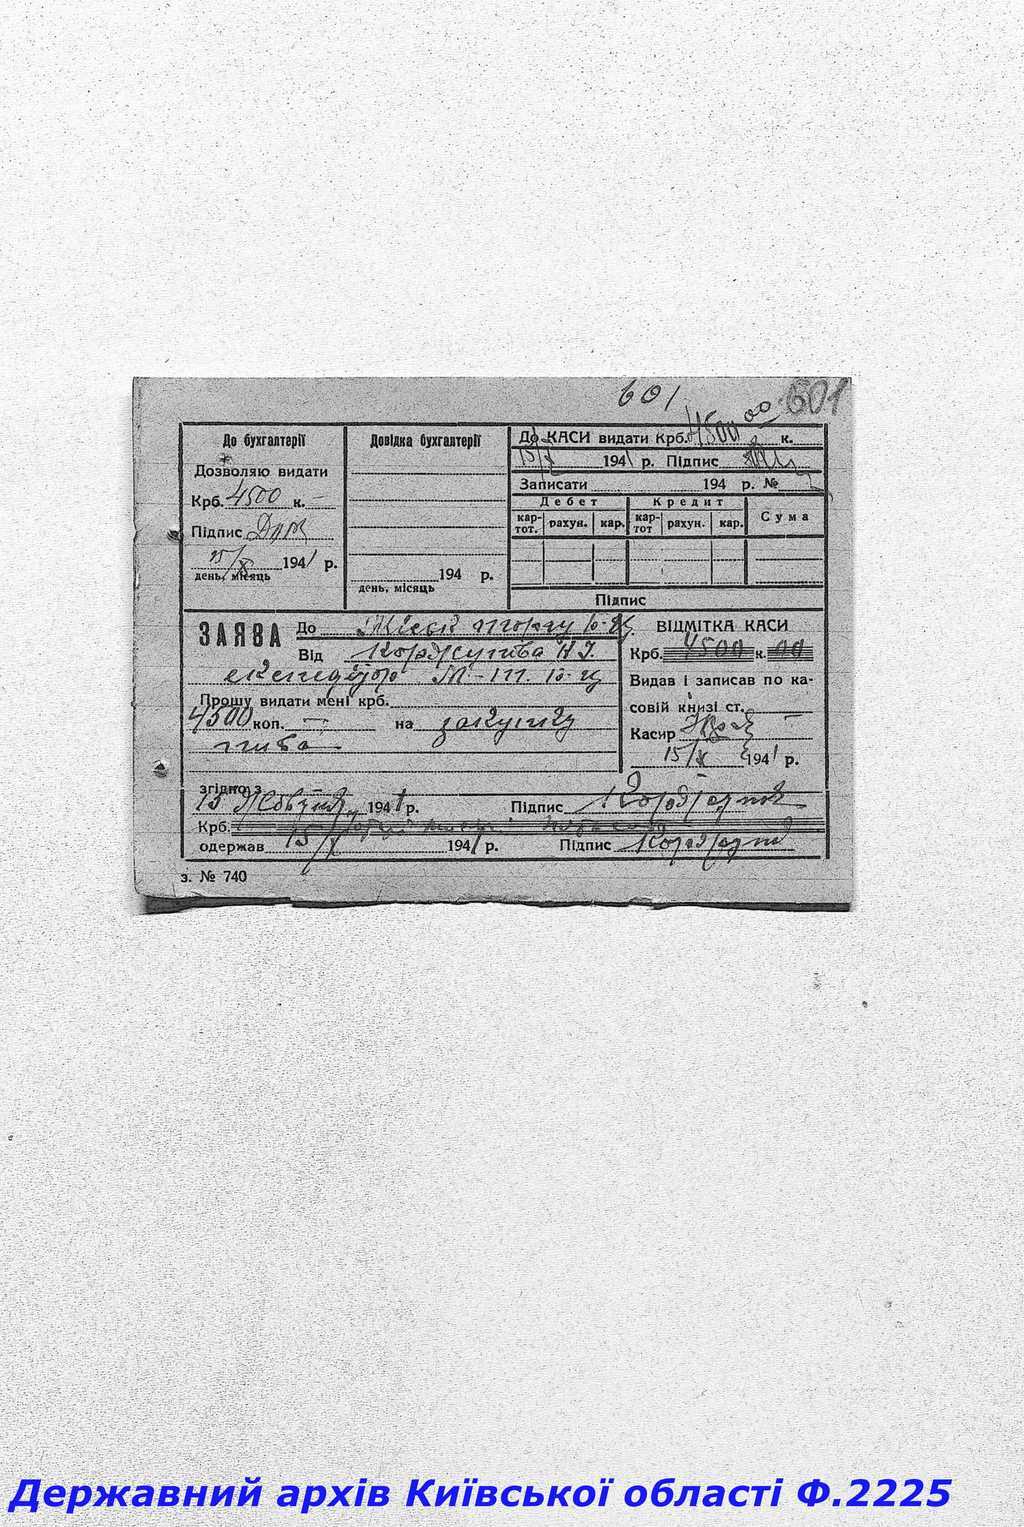 601
601
До бухгалтерії
Дозволяю видати
Крб. 4500 к. —
Підпис
15/X 1941 р.
день, місяць
Довідка бухгалтерії
194 р.
день, місяць
До КАСИ видати Крб. 4500 00 к.
15/X 1941 р. Підпис
Записати 194 р. №
Дебет Кредит Сума
кар-тот. рахун. кар. кар-тот рахун. кар.
Підпис
ЗАЯВА До Міськ торгу Б-Ц.
Від
М-т. Б-Ц
Прошу видати мені крб.
4500 коп. — на закупку
пива
ВІДМІТКА КАСИ
Крб. 4500 к. 00
Видав і записав по ка-
совій книзі ст. —
Касир
15/X 1941 р.
згідно з
15 Жовтня 1941 р. Підпис
Крб.
одержав 15/X 1941 р. Підпис
з. № 740
Державний архів Київської області Ф.2225